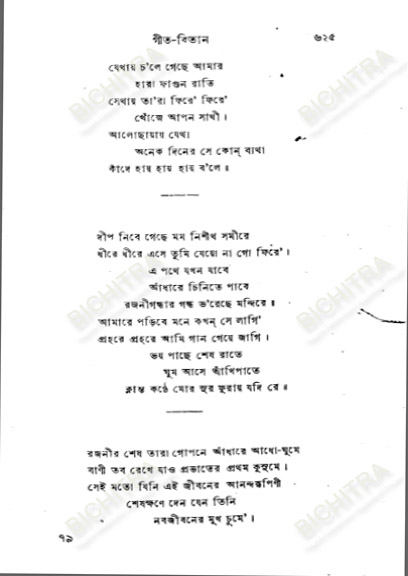 গীত-বিতান ৬২৫
যেথায় চ'লে গেছে আমার
হারা ফাগুন রাতি
সেথায় তা'রা ফিরে' ফিরে'
খোঁজে আপন সাথী।
আলোছায়ায় যেথা
অনেক দিনের সে কোন্ ব্যথা
কাঁদে হায় হায় হায় ব'লে॥
দীপ নিবে গেছে মম নিশীথ সমীরে
ধীরে ধীরে এসে তুমি যেয়ো না গো ফিরে'।
এ পথে যখন যাবে
আঁধারে চিনিতে পাবে
রজনীগন্ধার গন্ধ ভ'রেছে মন্দিরে॥
আমারে পড়িবে মনে কখন্ সে লাগি'
প্রহরে প্রহরে আমি গান গেয়ে জাগি।
ভয় পাছে শেষ রাতে
ঘুম আসে আঁখিপাতে
ক্লান্ত কণ্ঠে মোর সুর ফুরায় যদি রে॥
রজনীর শেষ তারা গোপনে আঁধারে আধো-ঘুমে
বাণী তব রেখে যাও প্রভাতের প্রথম কুসুমে।
সেই মতো যিনি এই জীবনের আনন্দরূপিণী
শেষক্ষণে দেন যেন তিনি
নবজীবনের মুখ চুমে'।
৭৯
BICHITRA
BICHITRA
BICHITRA
BICHITRA
BICHITRA
BICHITRA